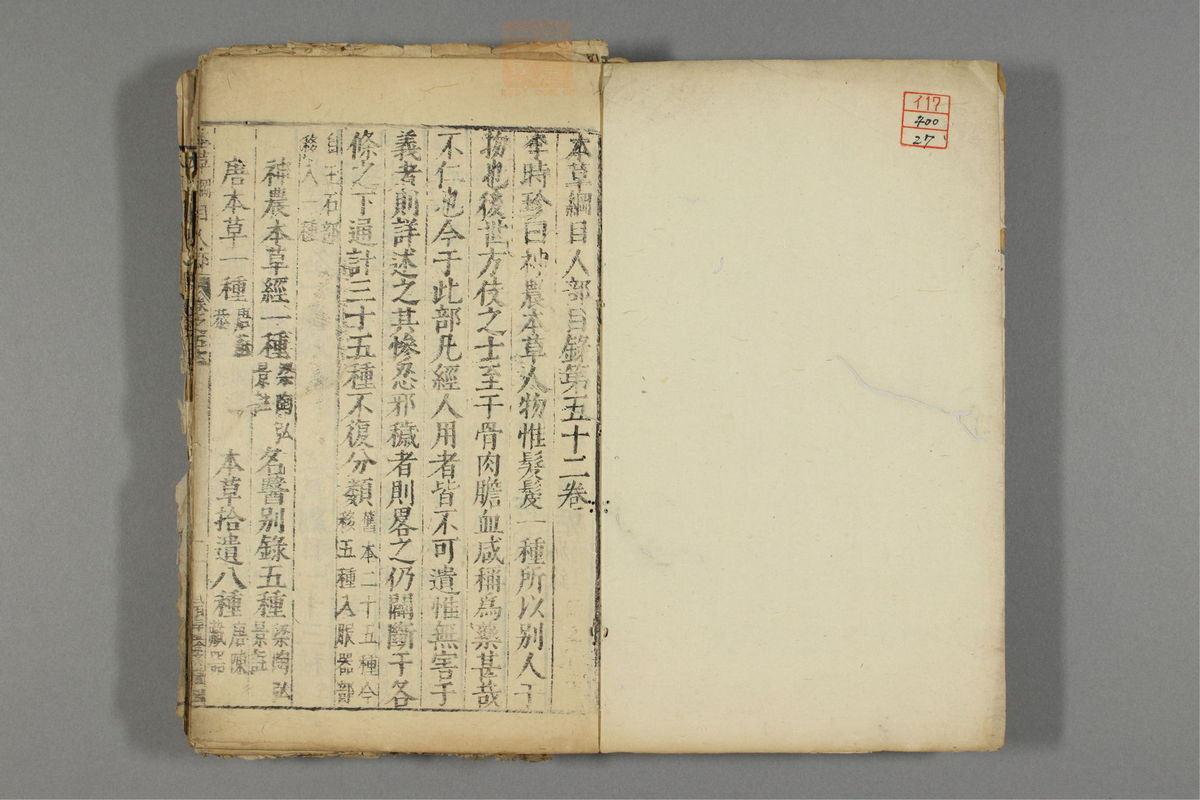 本草綱目人部目錄第五十二卷
李時珍曰神農本草人物惟髮髲一種所以别人于
物也後世方伎之士至于骨肉膽血咸稱爲藥甚哉
不仁也今于此部凡經人用者皆不可遺惟無害于
義者則詳述之其慘忍邪穢者則畧之仍闢斷于各
條之下通計三十五種不復分類
舊本二十五種今
移五種入服器部
自玉石部
移入一種
神農本草經一種
梁陶弘
景註
名醫别錄五種
梁陶弘
景註
唐本草一種
唐
恭
本草拾遺八種
唐陳
藏器
綱目人部
117
400
27